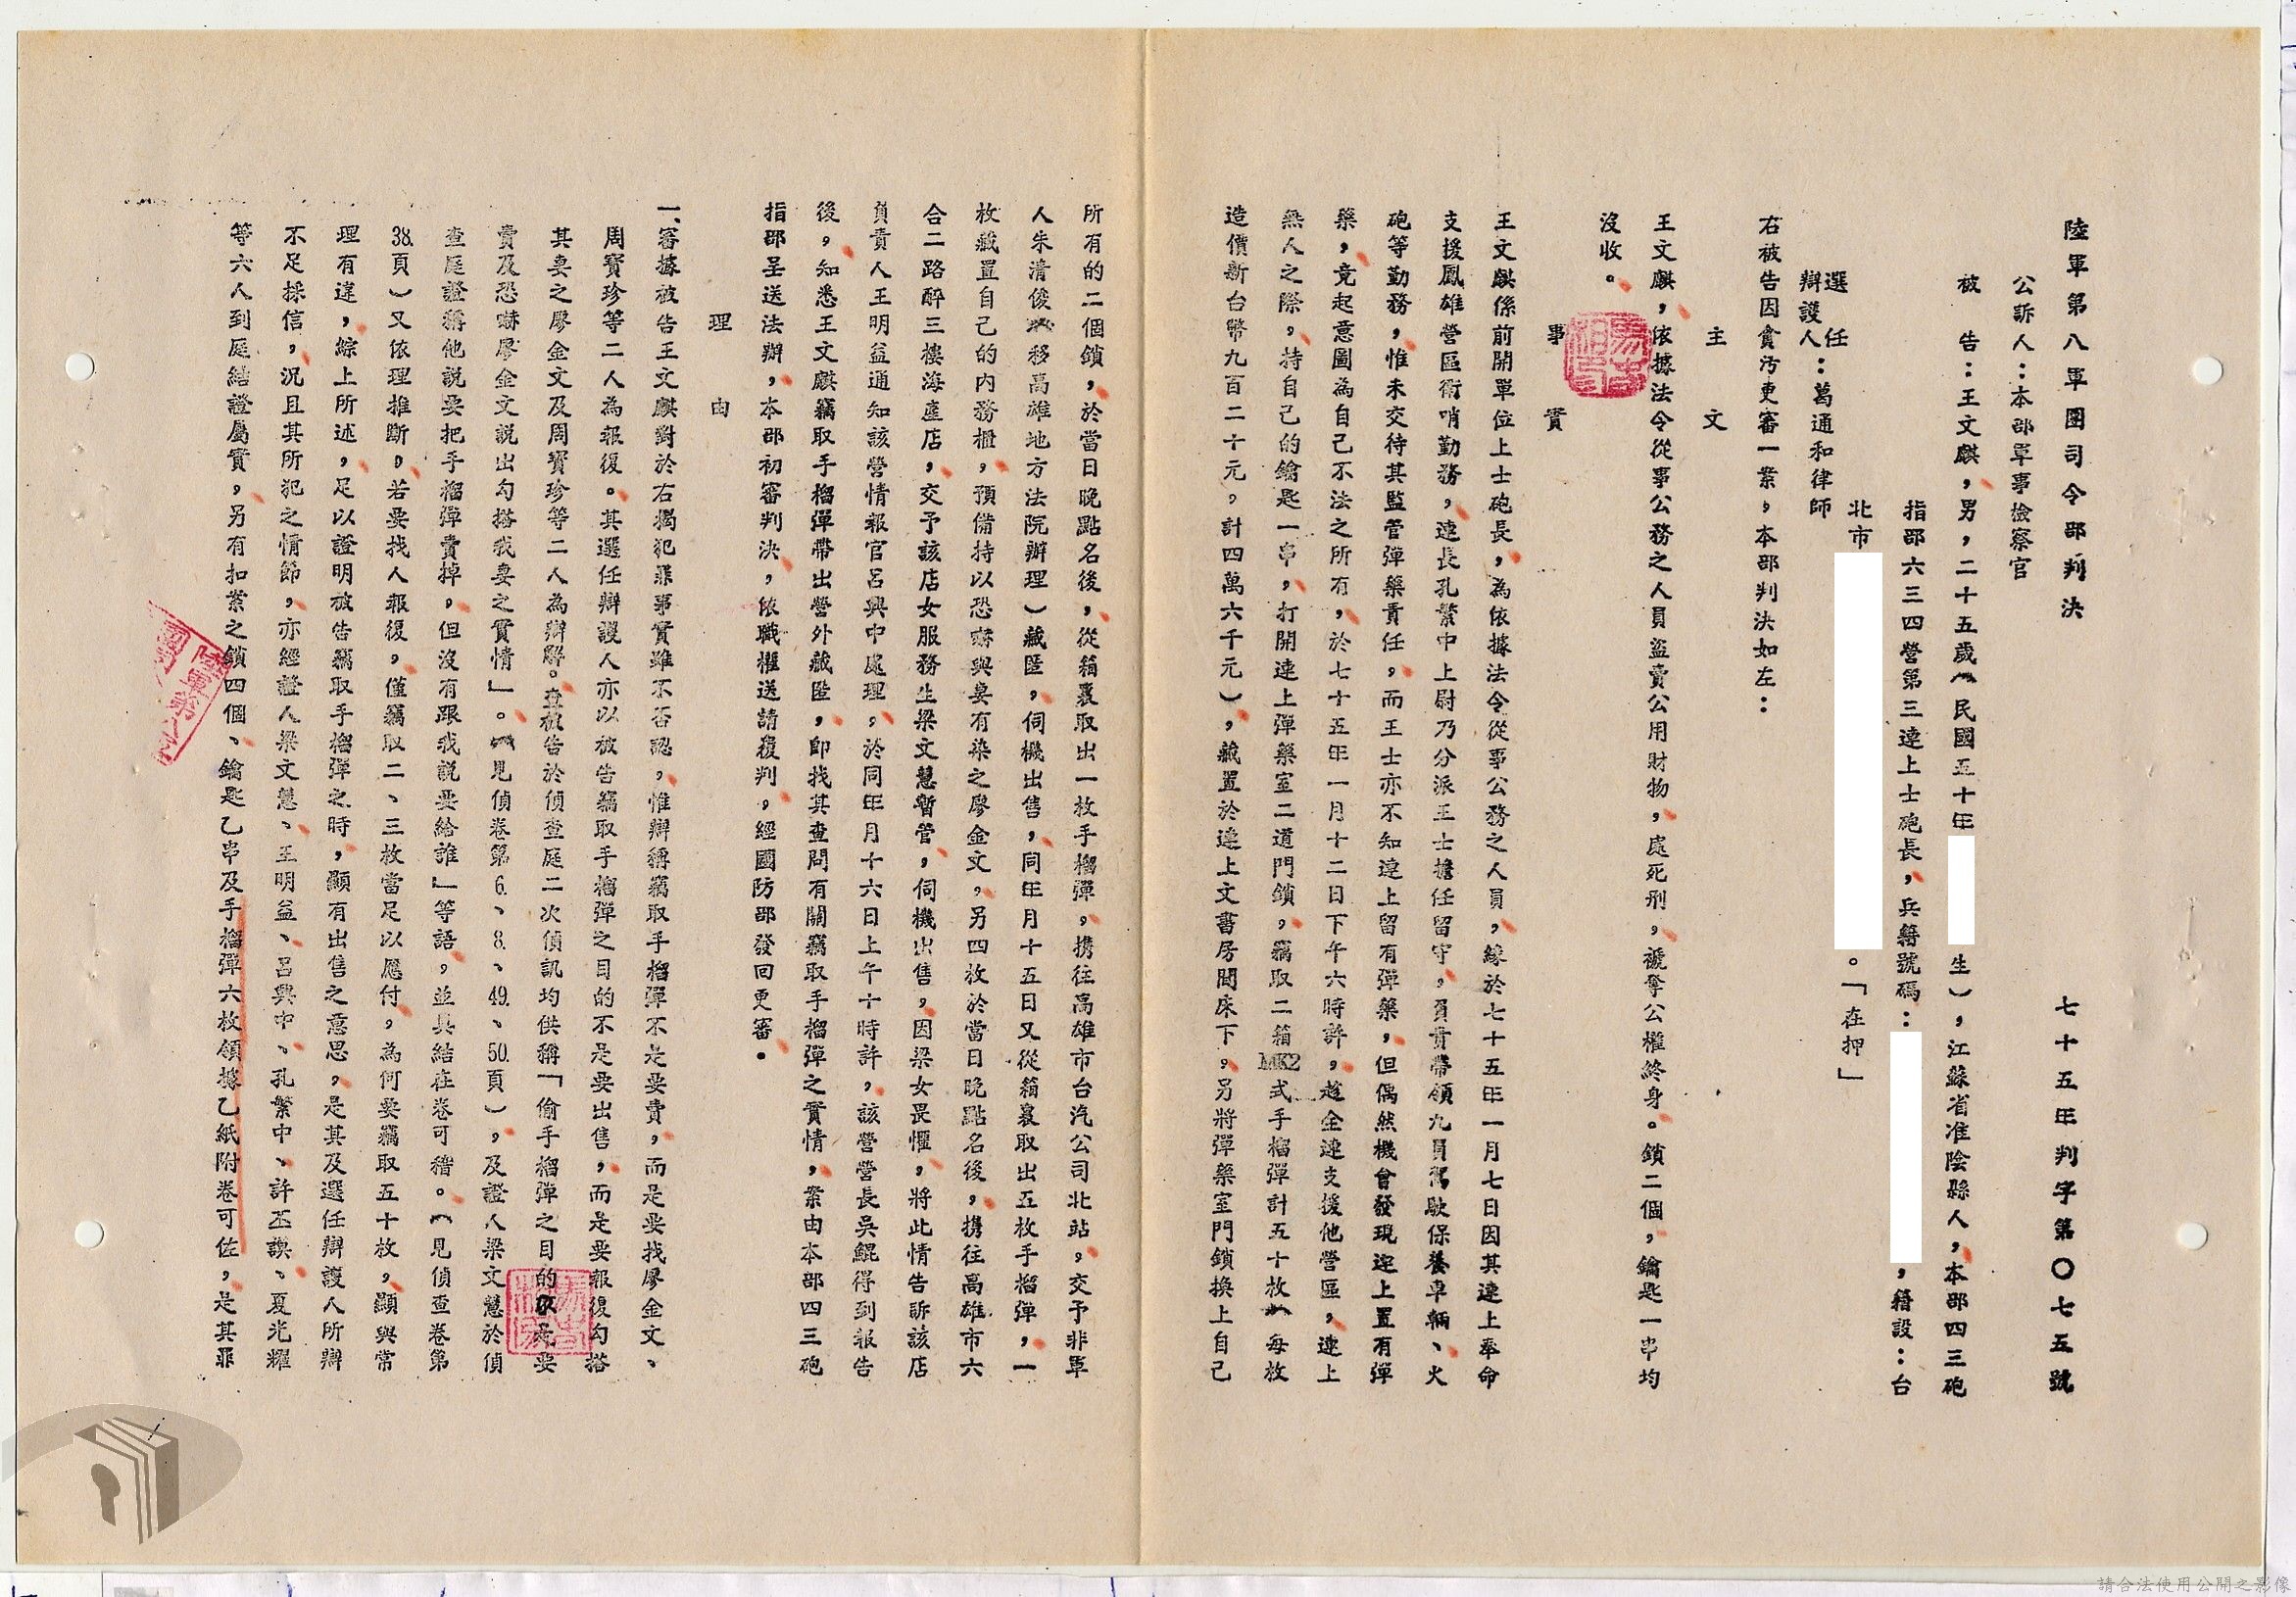 陸軍第八軍團司令部判決
七十五年判字第〇七五號
公訴人：本部軍事檢察官
被　告：王文麒，男，二十五歲（民國五十年
生），江蘇省淮陰縣人，本部四三砲
指部六三四營第三連上士砲長，兵籍號碼：
，籍設：台
北市
。「在押」
選任
辯護人：葛通和律師
右被告因貪污更審一案，本部判決如左：
主　文
王文麒，依據法令從事公務之人員盜賣公用財物，處死刑，褫奪公權終身。鎖二個，鑰匙一串均
沒收。
事　實
王文麒係前開單位上士砲長，為依據法令從事公務之人員，緣於七十五年一月七日因其連上奉命
支援鳳雄營區衛哨勤務，連長孔繁中上尉乃分派王士擔任留守，負責帶領九員駕駛保養車輛、火
砲等勤務，惟未交待其監管彈藥責任，而王士亦不知連上留有彈藥，但偶然機會發現連上置有彈
藥，竟起意圖為自己不法之所有，於七十五年一月十二日下午六時許，趁全連支援他營區，連上
無人之際，持自己的鑰匙一串，打開連上彈藥室二道門鎖，竊取二箱MK2式手榴彈計五十枚（每枚
造價新台幣九百二十元，計四萬六千元），藏置於連上文書房間床下，另將彈藥室門鎖換上自己
所有的二個鎖，於當日晚點名後，從箱裏取出一枚手榴彈，攜往高雄市台汽公司北站，交予非軍
人朱清俊（移高雄地方法院辦理）藏匿，伺機出售，同年月十五日又從箱裏取出五枚手榴彈，一
枚藏置自己的內務櫃，預備持以恐嚇與妻有染之廖金文，另四枚於當日晚點名後，攜往高雄市六
合二路醉三樓海產店，交予該店女服務生梁文慧暫管，伺機出售，因梁女畏懼，將此情告訴該店
負責人王明益通知該營情報官呂興中處理，於同年月十六日上午十時許，該營營長吳鯤得到報告
後，知悉王文麒竊取手榴彈帶出營外藏匿，即找其查問有關竊取手榴彈之實情，案由本部四三砲
指部呈送法辦，本部初審判決，依職權送請覆判，經國防部發回更審。
理　由
一、審據被告王文麒對於右揭犯罪事實雖不否認，惟辯稱竊取手榴彈不是要賣，而是要找廖金文、
周寶珍等二人為報復。其選任辯護人亦以被告竊取手榴彈之目的不是要出售，而是要報復勾搭
其妻之廖金文及周寶珍等二人為辯解。查被告於偵查庭二次偵訊均供稱「偷手榴彈之目的是要
賣及恐嚇廖金文說出勾搭我妻之實情」。（見偵卷第6.、8.、49.、50.頁），及證人梁文慧於偵
查庭證稱他說要把手榴彈賣掉，但沒有跟我說要給誰」等語，並具結在卷可稽。（見偵查卷第
38.頁）又依理推斷，若要找人報復，僅竊取二、三枚當足以應付，為何要竊取五十枚，顯與常
理有違，綜上所述，足以證明被告竊取手榴彈之時，顯有出售之意思，是其及選任辯護人所辯
不足採信，況且其所犯之情節，亦經證人梁文慧、王明益、呂興中、孔繁中、許丕謨、夏光耀
等六人到庭結證屬實，另有扣案之鎖四個、鑰匙乙串及手榴彈六枚領據乙紙附卷可佐，是其罪
陸軍第八軍
請合法使用公開之影像